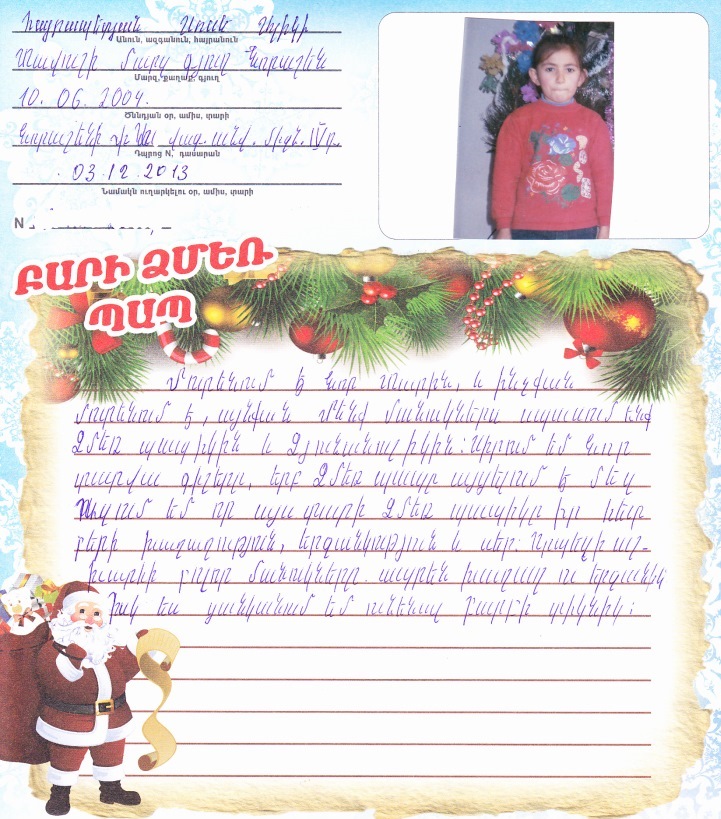 Հայրապետյան Անահ Հլիկի
Անուն, ազգանուն, հայրանուն
Տավուշի մարզ գյուղ Նորաշեն
Մարզ, քաղաք, գյուղ
10. 06. 2004.
Ծննդյան օր, ամիս, տարի
Նորաշենի անվ. միջն. IV դ.
Դպրոց N, դասարան
03.12.2013
Նամակն ուղարկելու օր, ամիս, տարի
N
ԲԱՐԻ ՁՄԵՌ
ՊԱՊ
Մոտենում է Նոր տարին, և ինչքան
մոտենում է, այնքան մենք մանակներս սպասում ենք
Ձմեռ պապիկին և Ձյունանուշիկին: Սիրում եմ Նոր
տարվա գիշերը, երբ Ձմեռ պապը այցելում է մեզ
Ուզում եմ որ այս տարի Ձմեռ պապիկը իր հետ
բերի խաղաղություն, երջանկություն և սեր: Որպեսզի աշ-
խարհի բոլոր մանուկները ապրեն խաղաղ ու երջանիկ
Իսկ ես ցանկանում եմ ունենալ Բարբի տիկնիկ: